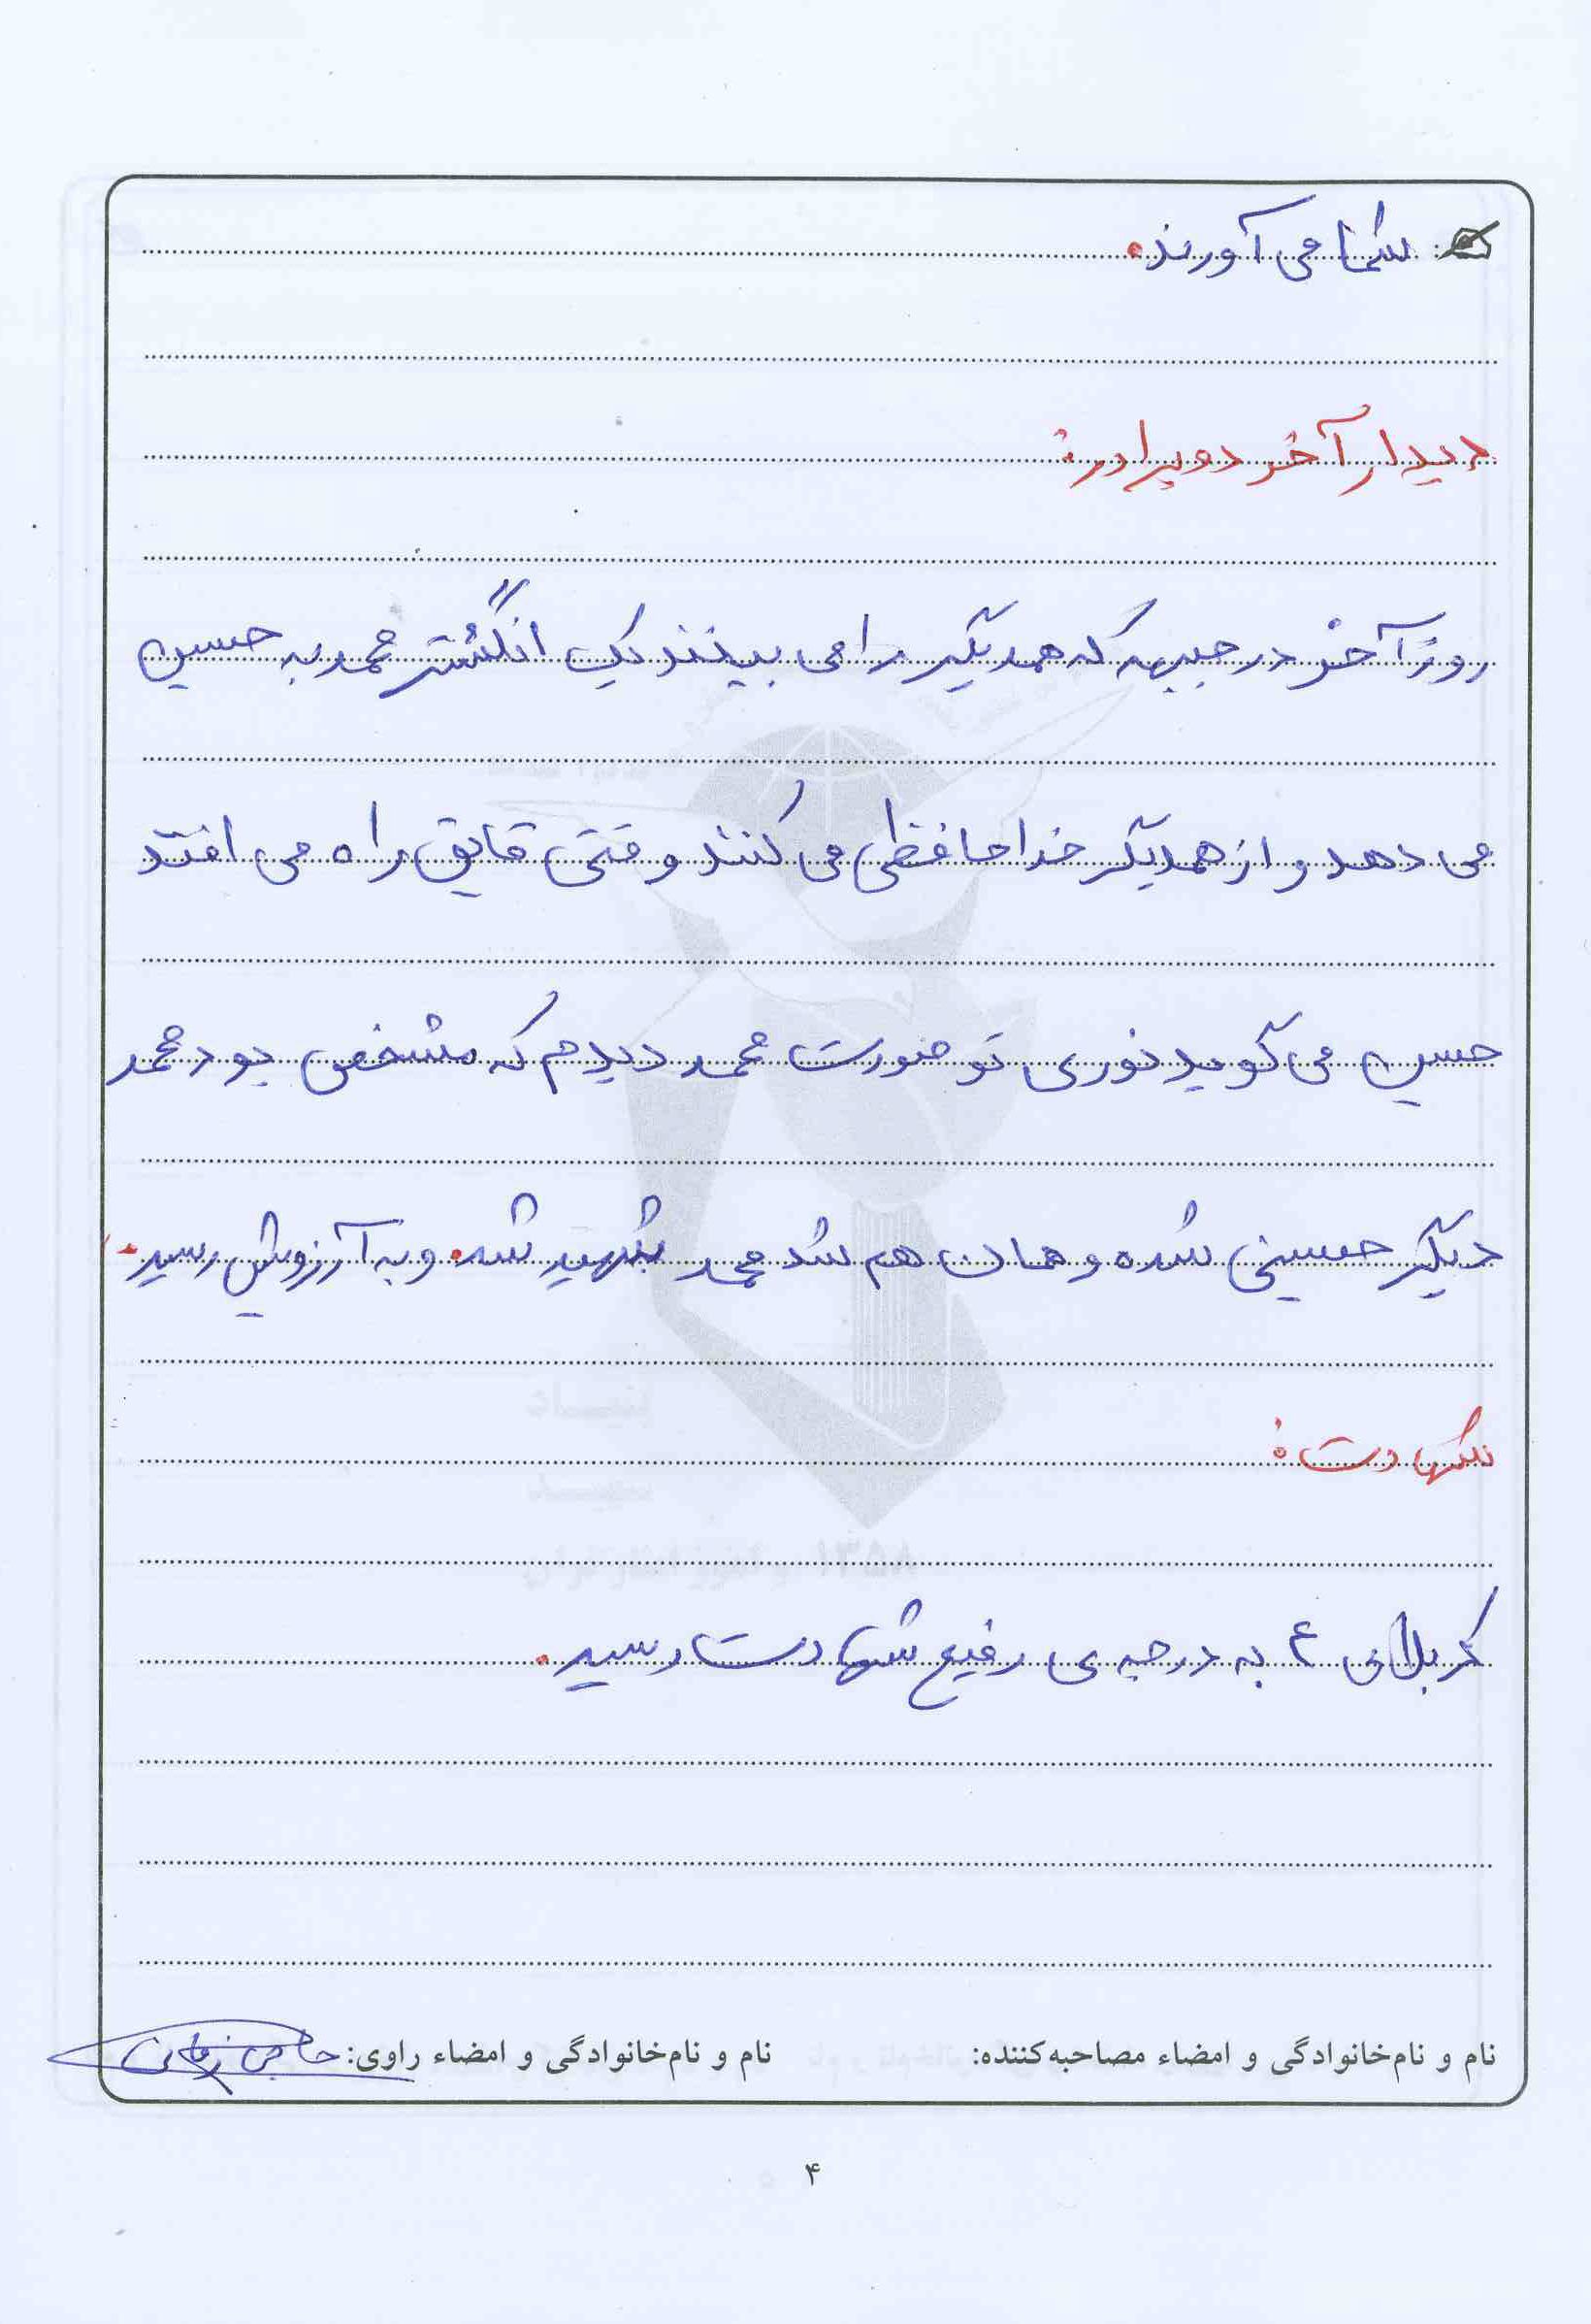 شما می آورند.
دیدار آخر دو برادر:
روز آخر در جبهه که همدیگر را می بینند یک انگشتر محمد به حسین
می دهد و از همدیگر خداحافظی می کنند وقتی قایق راه می افتد
حسین می گوید نوری تو صورت محمد دیدم که مشخص بود محمد
دیگر حسینی شده و همان هم شد محمد شهید شد. و به آرزویش رسید.
شهادت:
کربلای ۴ به درجه ی رفیع شهادت رسید.
نام و نام‌خانوادگی و امضاء مصاحبه‌کننده: نام و نام‌خانوادگی و امضاء راوی:
۴